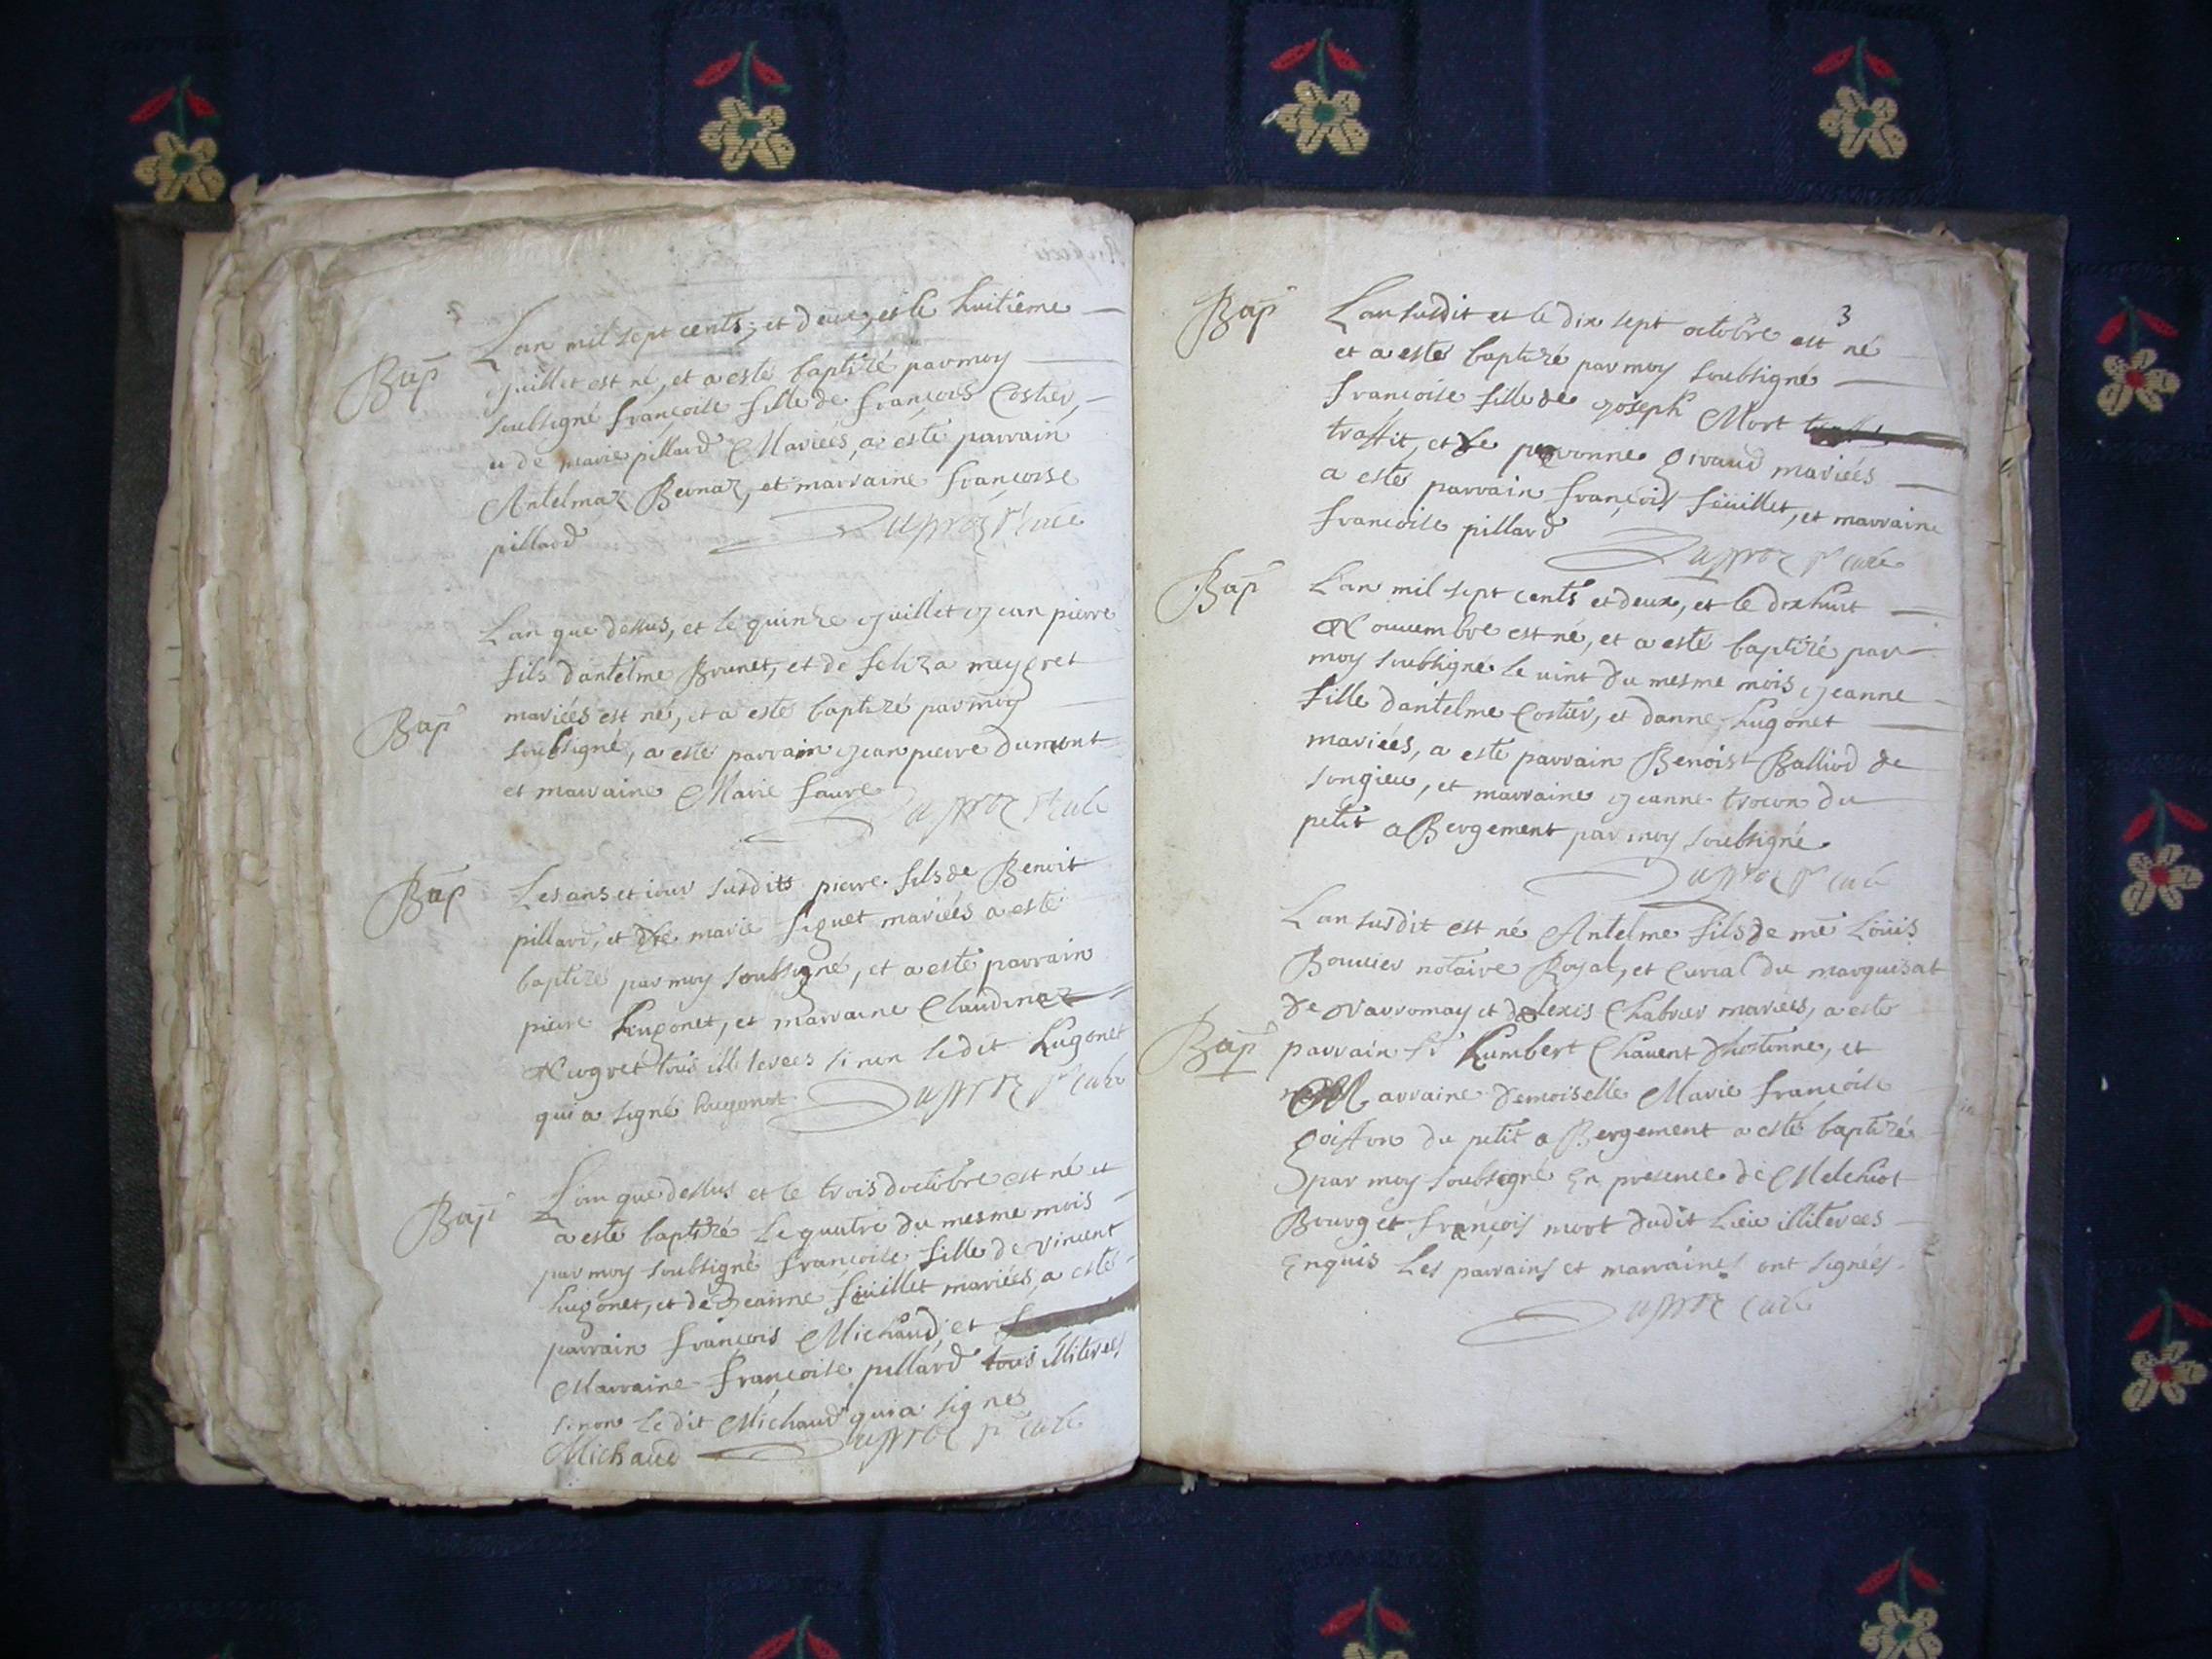 Bap
Lan mil sept cents, et deux, et le huitième
juillet est né, et a esté baptizé par moy
soubsigné françoise fille de françois Costier,
et de marie pillard Mariées, a esté parrain
Antelmaz Bernaz, et marraine françoise
pillard
Bap
Lan que dessus, et le quinze juillet jean pierre
fils dantelme Brunet, et de feliza meygret
mariées est né, et a esté baptizé par moy
soubsigné, a esté parrain jean pierre dumont
et marraine Marie faure
Bap
Les ans et iour susdits pierre fils de Benoit
pillard, et de marie siguet mariées a esté
baptizé par moy soubsigné, et a esté parrain
pierre hugonet, et marraine Claudinaz
tous illiterees sinon ledit hugonet
qui a signé hugonet
Bap
Lan que dessus et le trois doctobre est né et
a esté baptizé le quatre du mesme mois
par moy soubsigné françoise fille de vincent
hugonet, et de jeanne feuillet mariées, a esté
parrain françois Michaud, et
Marraine françoise pillard tous illiterees
sinon ledit Michaud qui a signé
Michaud
3
Bap
Lan susdit et le dix sept octobre est né
et a esté baptizé par moy soubsigné
françoise fille de joseph Mort
traffit, et de pervonne givaud mariées
a esté parrain françois feüillet, et marraine
françoise pillard
Bap
Lan mil sept cents et deux, et le dix huit
Nouuembre est né, et a esté baptizé par
moy soubsigné le uint du mesme mois jeanne
fille dantelme Costier, et danne hugonet
mariées, a esté parrain Benoist Balliod de
songieu, et marraine jeanne trocon du
petit aBergement par moy soubsigné
Bap
Lan susdit est né Antelme fils de me Loüis
Bouuier notaire Royal, et Curial du marquisat
de Varromay et dalexis Chabrier mariées, a esté
parrain sr humbert Chauent dhostonne, et
Marraine demoiselle Marie françoise
goiffon du petit aBergement a esté baptizé
par moy soubsigné En presence de Melchiot
Bourg et françois mort dudit Lieu illiterees
Enquis Les parrains et marraines ont signées